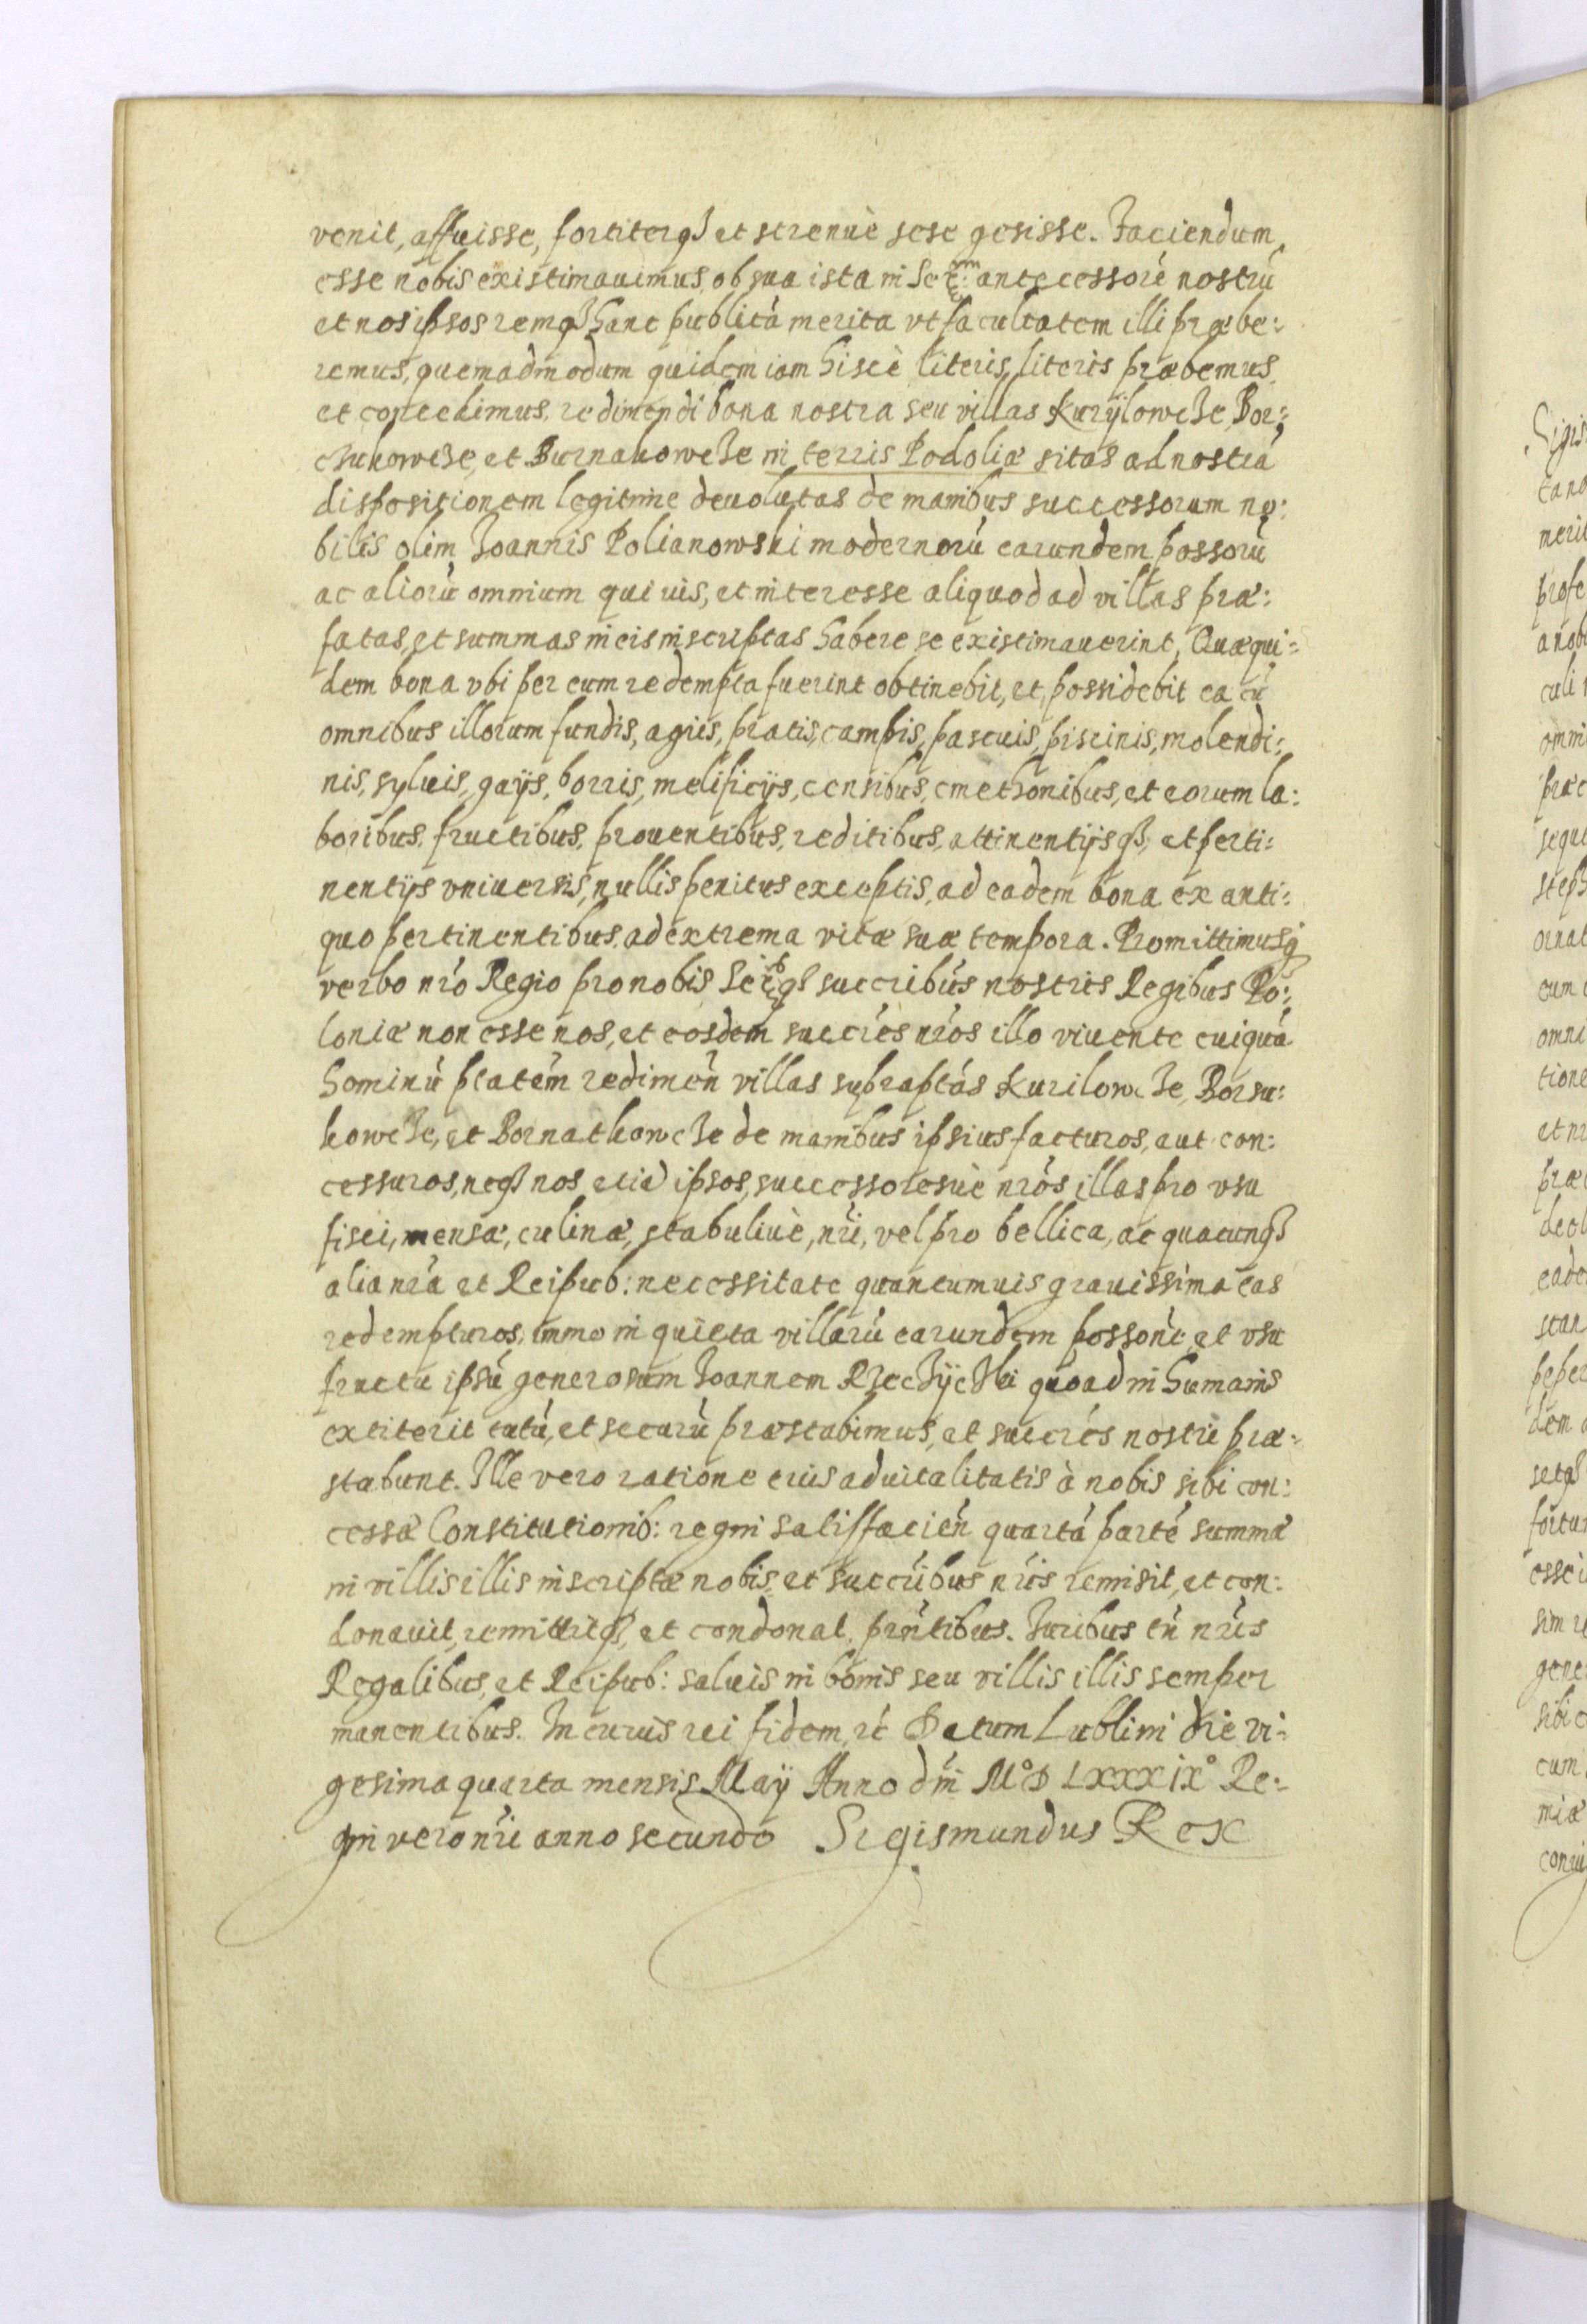 venit, affuisse, fortiterq3 et strenuè sese gesisse. Faciendum
esse nobis existimauimus, ob sua ista in Ser:mum antecessorē nostrū
et nos ipsos remq3 hanc publicā merita vt facultatem illi præbe:
remus, quemadmodum quidem iam hiscè literis, literis præbemus
et concedimus. redimendi bona nostra seu villas Kurÿlowcze, Bor:
sukowcze, et Burnakowcze in terris Podoliæ sitas ad nostrā
dispositionem legitime deuolutas de manibus successorum no:
bilis olim Joannis Polianowski modernorū earundem possorū
ac aliorū omnium qui uis, et interesse aliquod ad villas præ:
fatas, et summas in eis inscriptas habere se existimauerint, Quæqui:
dem bona vbi per eum redempta fuerint obtinebit, et possidebit ea cū
omnibus illorum fundis, agris, pratis, campis, pascuis, piscinis, molendi:
nis, syluis, gaÿs, borris, melificÿs, censibus, cmethonibus, et eorum la:
boribus. fructibus, prouentibus, reditibus, attinentÿsq3, et perti:
nentÿs vniuersis, nullis penitus exceptis, ad eadem bona ex anti:
quo pertinentibus, ad extrema vitæ suæ tempora. Promittimusq3
verbo nr̄o Regio pro nobis Ser:bq3 succribūs nostris Regibus Po:
loniæ non esse nos, et eosdem succr̄es nr̄os illo viuente cuiquā
hominū ptatēm redimen̄ villas supraptās Kurilowcze, Borsu:
kowcze, et Bornathowcze de manibus ipsius facturos, aut con:
cessuros, neq3 nos etiā ipsos, successoresuè nr̄os illas pro vsu
fisci, mensæ, culinæ, stabuliuè, nr̄i, vel pro bellica, ac quacunq3
alia nr̄a et Reipub: necessitate quantumuis grauissima eas
redempturos, immo in quieta villarū earundem possone et vsu
fructu ipsū generosum Joannem Rzeczÿcki quoad in humanis
extiterit tutū, et securū præstabimus, et succr̄es nostri præ:
stabunt. Ille vero ratione eius aduitalitatis à nobis sibi con:
cessæ Constitutionib: regni satisfacien̄ quartā partē summæ
in villis illis inscriptæ nobis, et succr̄ibus nr̄is remisit, et con:
donauit, remittitq3, et condonat. prn̄tibus. Juribus tn̄ nr̄is
Regalibus, et Reipub: saluis in bonis seu villis illis semper
manentibus. In cuius rei fidem, rc̄ Datum Lublini die vi:
gesima quarta mensis Maÿ Anno dn̄i M°D LXXXIX° Re:
gni vero nr̄i anno secundo Sigismundus Rex